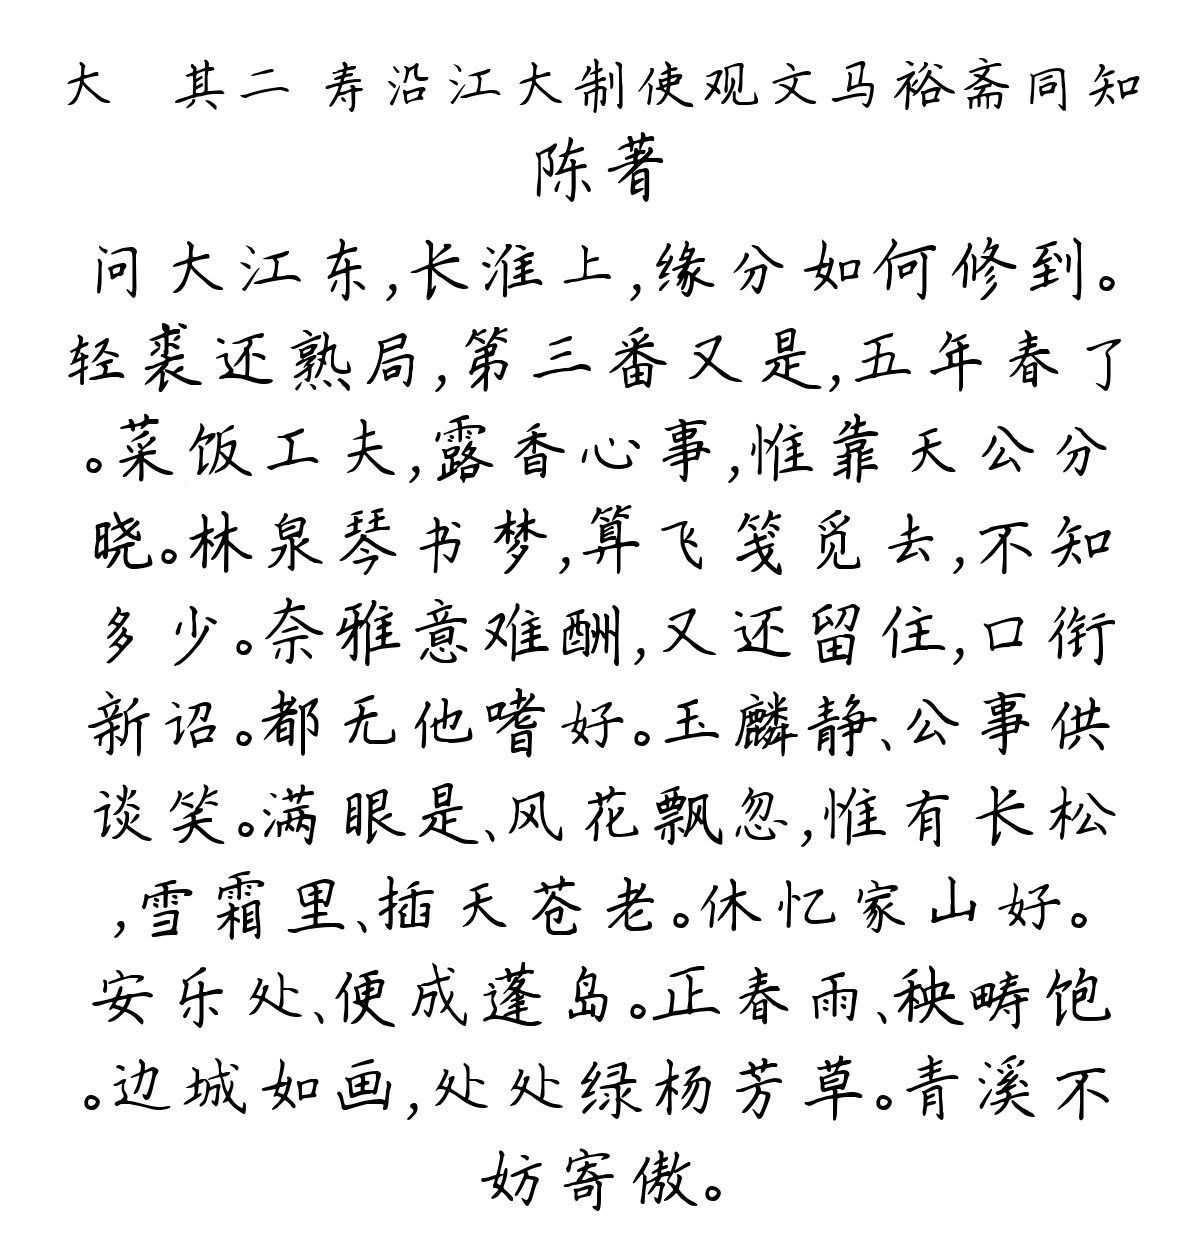 大　其二 寿沿江大制使观文马裕斋同知
陈著
问大江东,长淮上,缘分如何修到。
轻裘还熟局,第三番又是,五年春了
。菜饭工夫,露香心事,惟靠天公分
晓。林泉琴书梦,算飞笺觅去,不知
多少。奈雅意难酬,又还留住,口衔
新诏。都无他嗜好。玉麟静、公事供
谈笑。满眼是、风花飘忽,惟有长松
,雪霜里、插天苍老。休忆家山好。
安乐处、便成蓬岛。正春雨、秧畴饱
。边城如画,处处绿杨芳草。青溪不
妨寄傲。